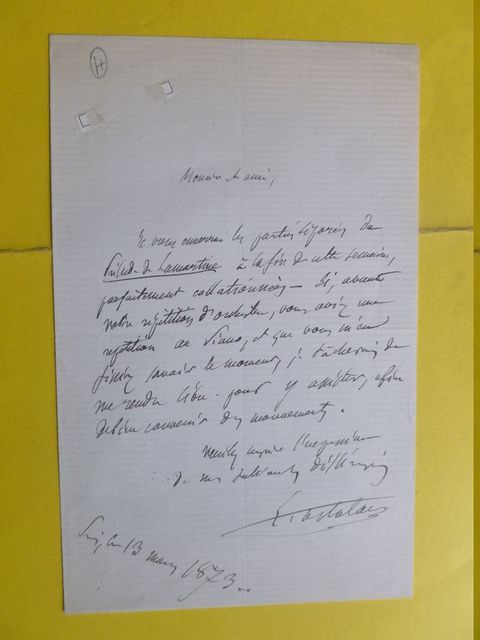 H
Monsieur et ami,
Je vous enverrai les parties séparées du
Prélude de Lamartine à la fin de cette semaine,
parfaitement collationnées — Si, avant
notre répétition d'orchestre, vous aviez une
répétition au Piano, et que vous m'en
fissiez savoir le moment, je tâcherais de
me rendre libre pour y assister, afin
de bien convenir des mouvements.
Veuillez agréer l'expression
de mes sentiments distingués
13 mars 1873